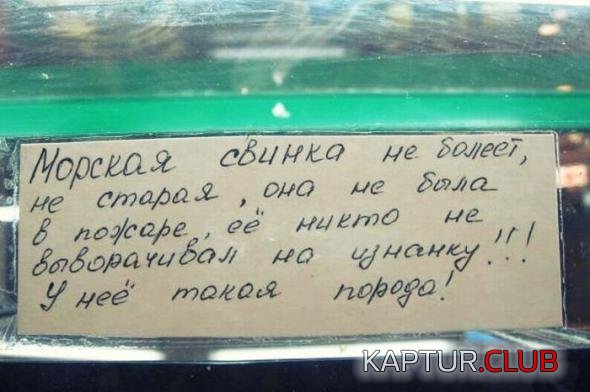 Морская свинка не болеет,
не старая, она не была
в пожаре, её никто не
выворачивал на изнанку!!!
У неё такая порода!
KAPTUR.CLUB